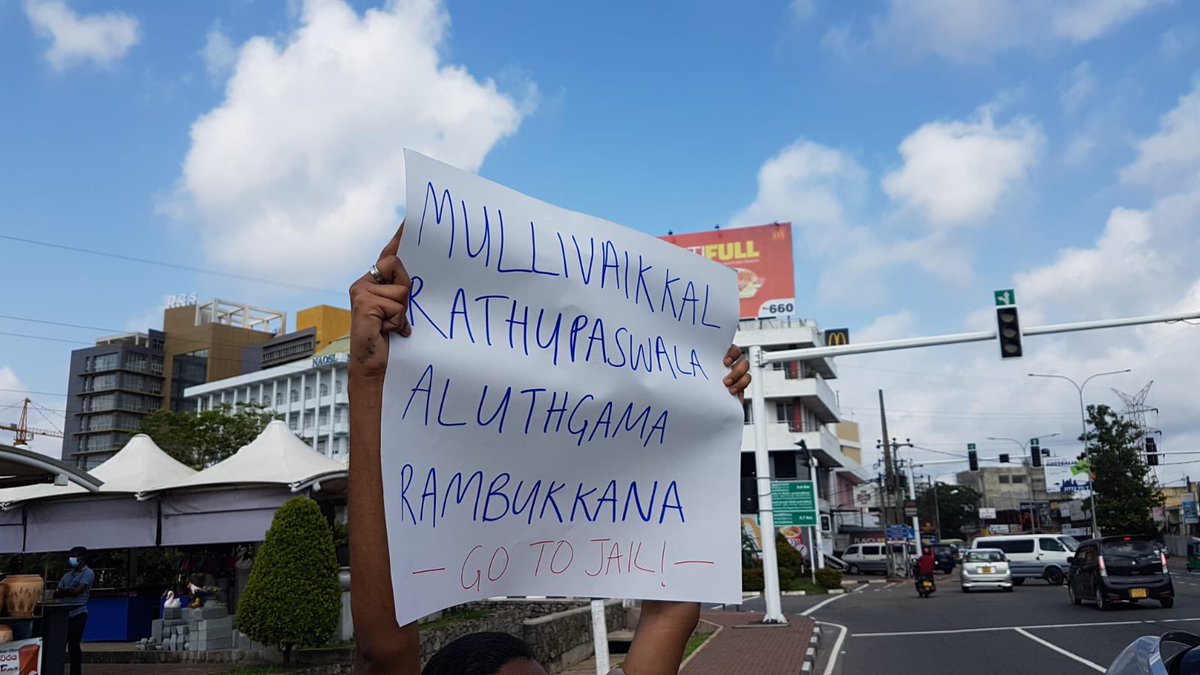 MULLIVAIKKAL
RATHUPASWALA
ALUTHGAMA
RAMBUKKANA
— GO TO JAIL! —
FULL
Rs660